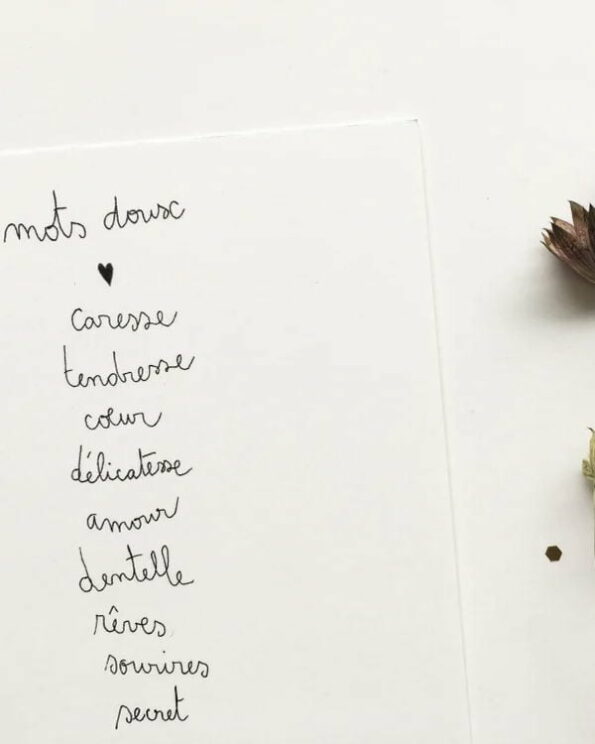 mots doux
caresse
tendresse
cœur
délicatesse
amour
dentelle
rêves
sourires
secret